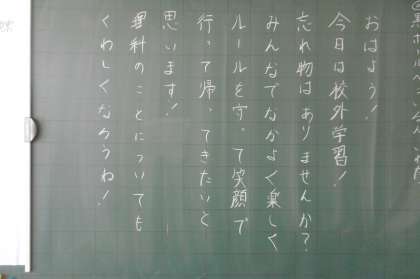 おはよう!
今日は校外学習!
忘れ物はありませんか?
みんなでなかよく楽しく
ルールを守って笑顔で
行って帰ってきたいと
思います!
理科のことについても
くわしくなろうね!